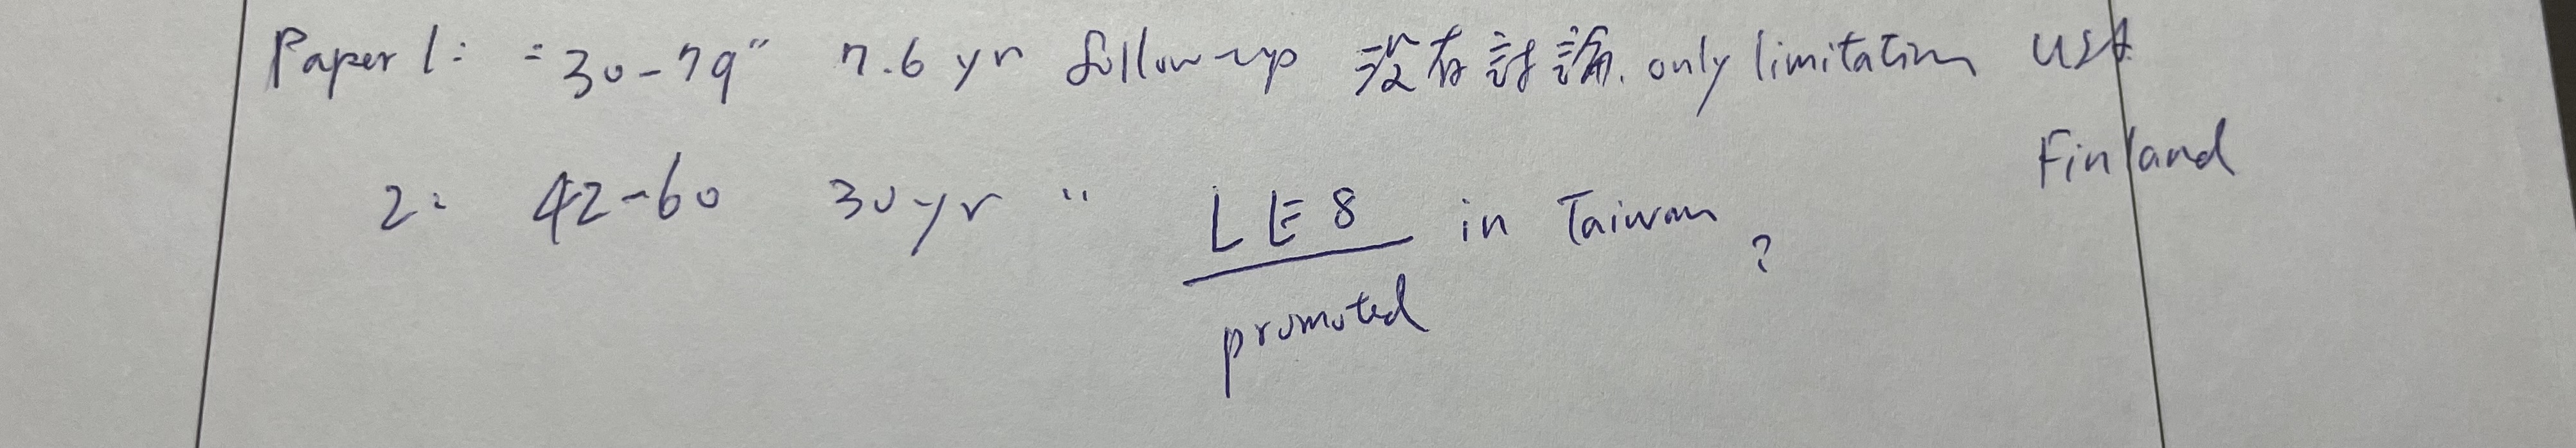 Paper 1: "30-79" 7.6 yr follow-up 沒有討論. only limitation USA
Finland
2: 42-60 30 yr " LE8 in Taiwan ?
promoted